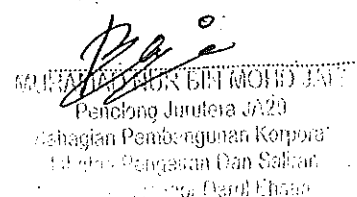 MUHAMAD NUR BIN MOHD
Penolong Jurutera JA29
Bahagian Pembangunan Korporat
Pengairan Dan Saliran
Darul Ehsan